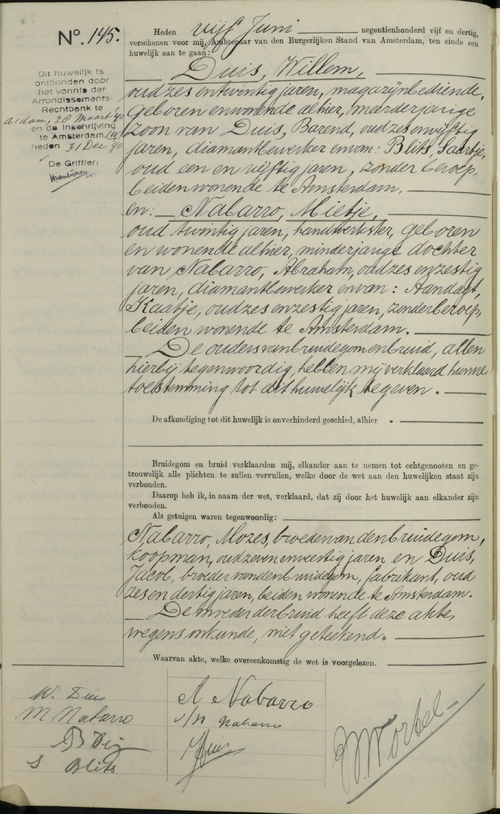 No. 145.
Dit huwelijk is
ontbonden door
het vonnis der
Arrondissements-
Rechtbank te
A'dam, 28 Maart '40
en de inschrijving
te Amsterdam
heden 31 Dec '40
De Griffier:
Heden vijf Juni negentienhonderd vijf en dertig,
verschenen voor mij, Ambtenaar van den Burgerlijken Stand van Amsterdam, ten einde een
huwelijk aan te gaan:
Duis, Willem,
oud zes en twintig jaren, magazijnbediende,
geboren en wonende alhier, meerderjarige
zoon van Duis, Barend, oud zes en vijftig
jaren, diamantbewerker en van: Blits, Saartje,
oud een en vijftig jaren, zonder beroep,
beiden wonende te Amsterdam.
en: Nabarro, Mietje,
oud twintig jaren, handwerkster, geboren
en wonende alhier, minderjarige dochter
van Nabarro, Abraham, oud zes en zestig
jaren, diamantbewerker en van: Aandagt,
Kaatje, oud zes en zestig jaren, zonder beroep,
beiden wonende te Amsterdam.
De ouders van bruidegom en bruid, allen
hierbij tegenwoordig, hebben mij verklaard hunne
toestemming tot dit huwelijk te geven.
De afkondiging tot dit huwelijk is onverhinderd geschied, alhier.
Bruidegom en bruid verklaarden mij, elkander aan te nemen tot echtgenooten en ge-
trouwelijk alle plichten te zullen vervullen, welke door de wet aan den huwelijken staat zijn
verbonden.
Daarop heb ik, in naam der wet, verklaard, dat zij door het huwelijk aan elkander zijn
verbonden.
Als getuigen waren tegenwoordig:
Nabarro, Mozes, broeder van den bruidegom,
koopman, oud zeven en veertig jaren en Duis,
Jacob, broeder van den bruidegom, fabrikant, oud
zes en dertig jaren, beiden wonende te Amsterdam.
De moeder der bruid heeft deze akte,
wegens onkunde, niet geteekend.
Waarvan akte, welke overeenkomstig de wet is voorgelezen.
W. Duis
M Nabarro
S Blits
A Nabarro
Nabarro
J Duis